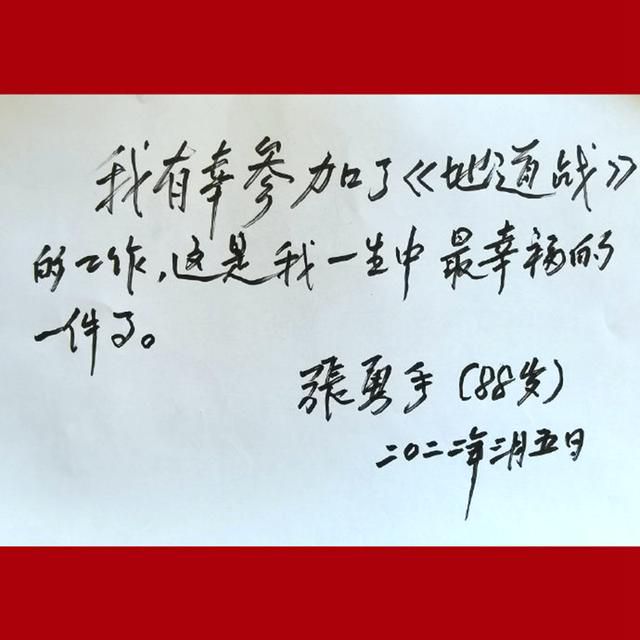 我有幸参加了《地道战》
的工作,这是我一生中最幸福的
一件事。
張勇手(88岁)
二〇二二年三月五日